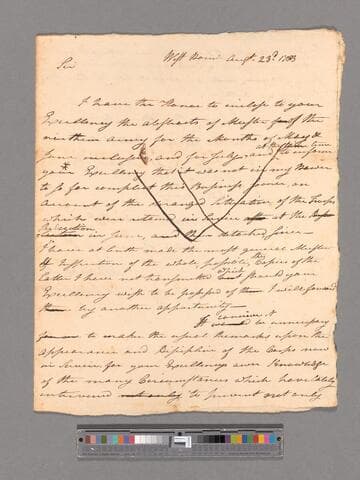 West Point Augt. 23d. 1783
Sir
I have the Honor to inclose to your
Excellency the abstracts of Muster of the
northern Army for the Months of May &
June inclusive, and for July and
at the same time to inform
your Excellency that it was not in my Power
to compleat this Business sooner, on
Account of the deranged Situation of the Troops
which were retained in Service at the
Reduction
in June, and the detached since
I have at length made the most general Muster
& Inspection of the whole possible, the Copies of the
Latter I have not transmitted but should your
Excellency wish to be possessed of them I will forward
them by another opportunity
I conceive it
to be unnecessary
for me to make the usual Remarks upon the
Appearance and Discipline of the Corps now
in Service for your Excellency's own Knowledge
of the many Circumstances which have lately
intervened not only to prevent not only